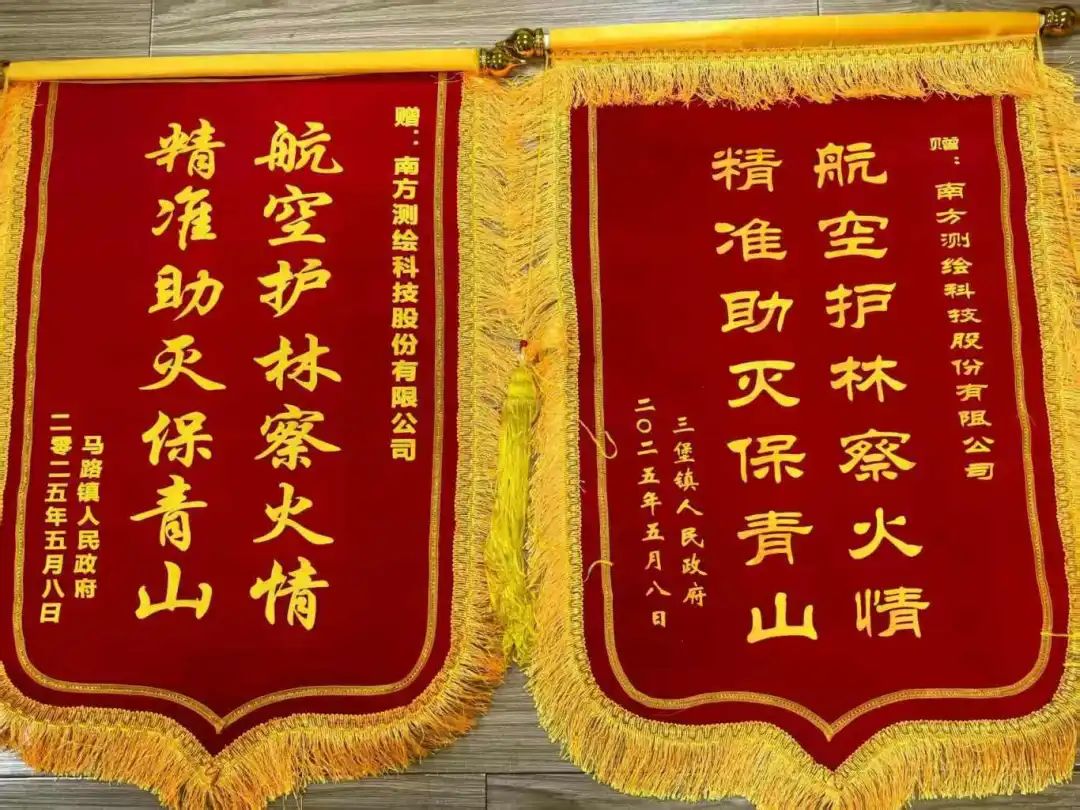 赠：南方测绘科技股份有限公司
航空护林察火情
精准助灭保青山
马路镇人民政府
二零二五年五月八日
赠：南方测绘科技股份有限公司
航空护林察火情
精准助灭保青山
三堡镇人民政府
二〇二五年五月八日